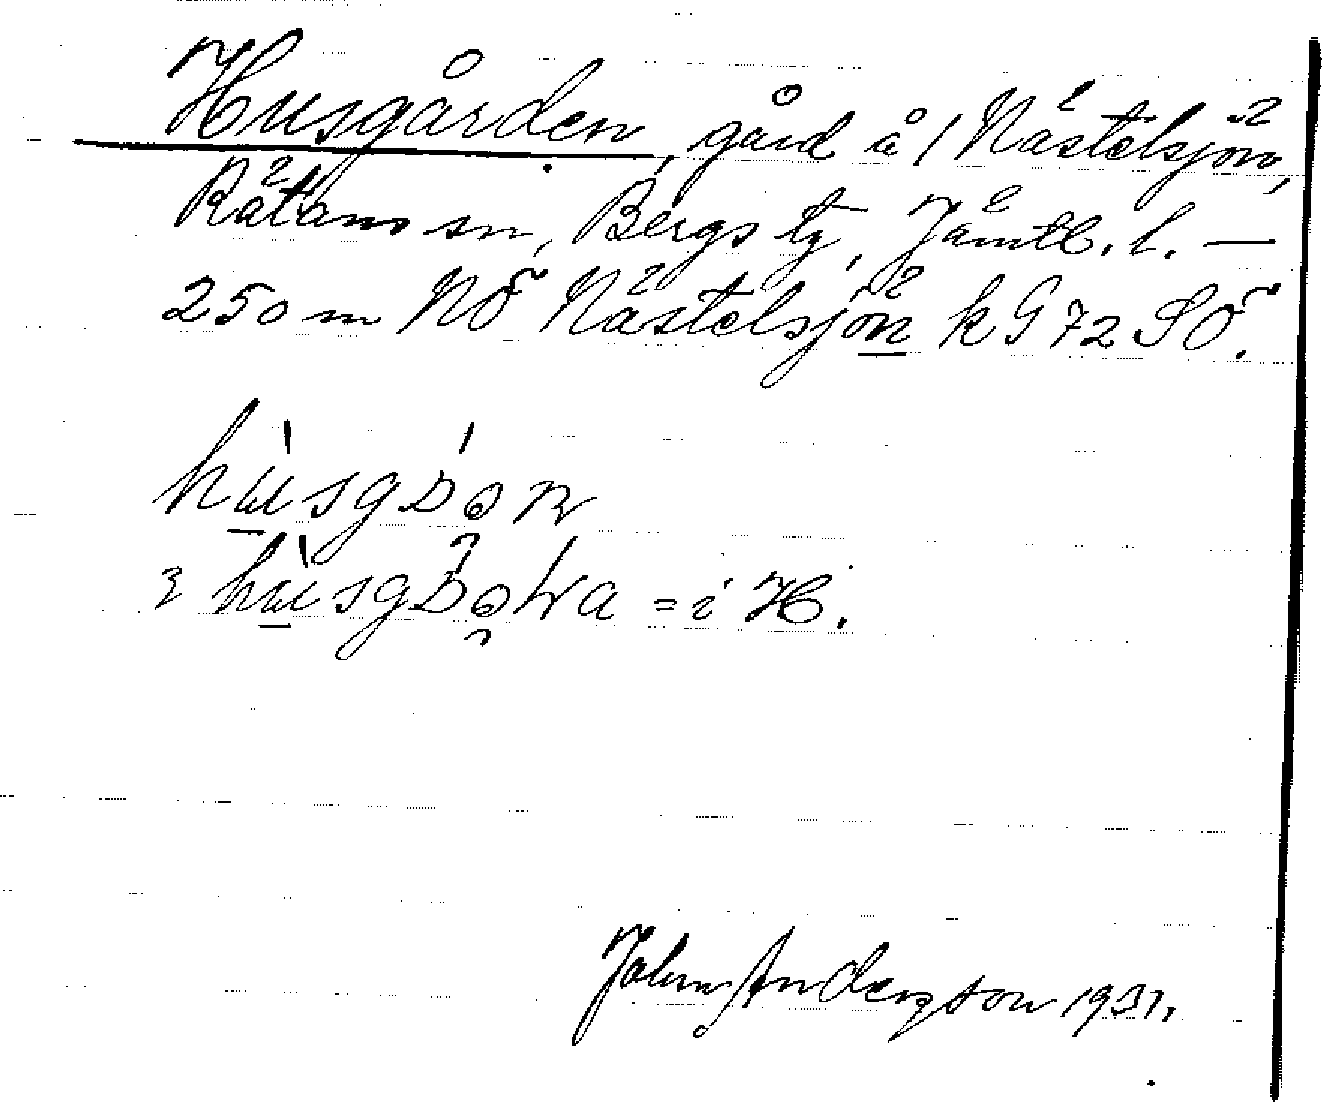 Husgården, gård å 1 Nästelsjön,
Rätans sn, Bergs tg, Jämtl. l. —
250 m NÖ Nästelsjön k G 72 SÖ.
= i H.
John Andersson 1931.